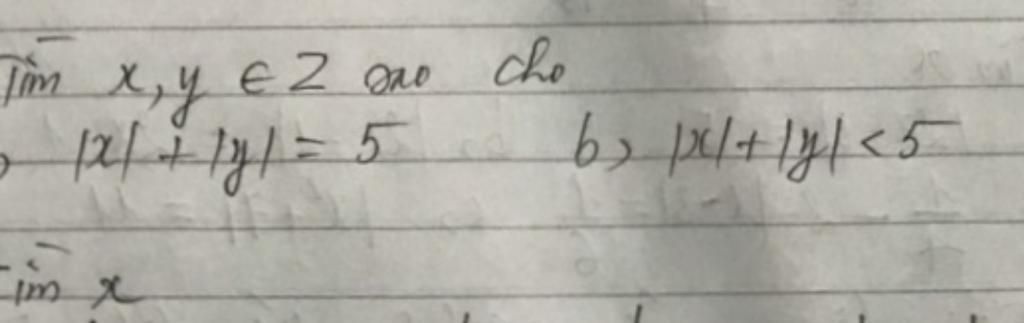 Tìm x, y ∈ Z sao cho
|x| + |y| = 5 b) |x| + |y| < 5
Tìm x